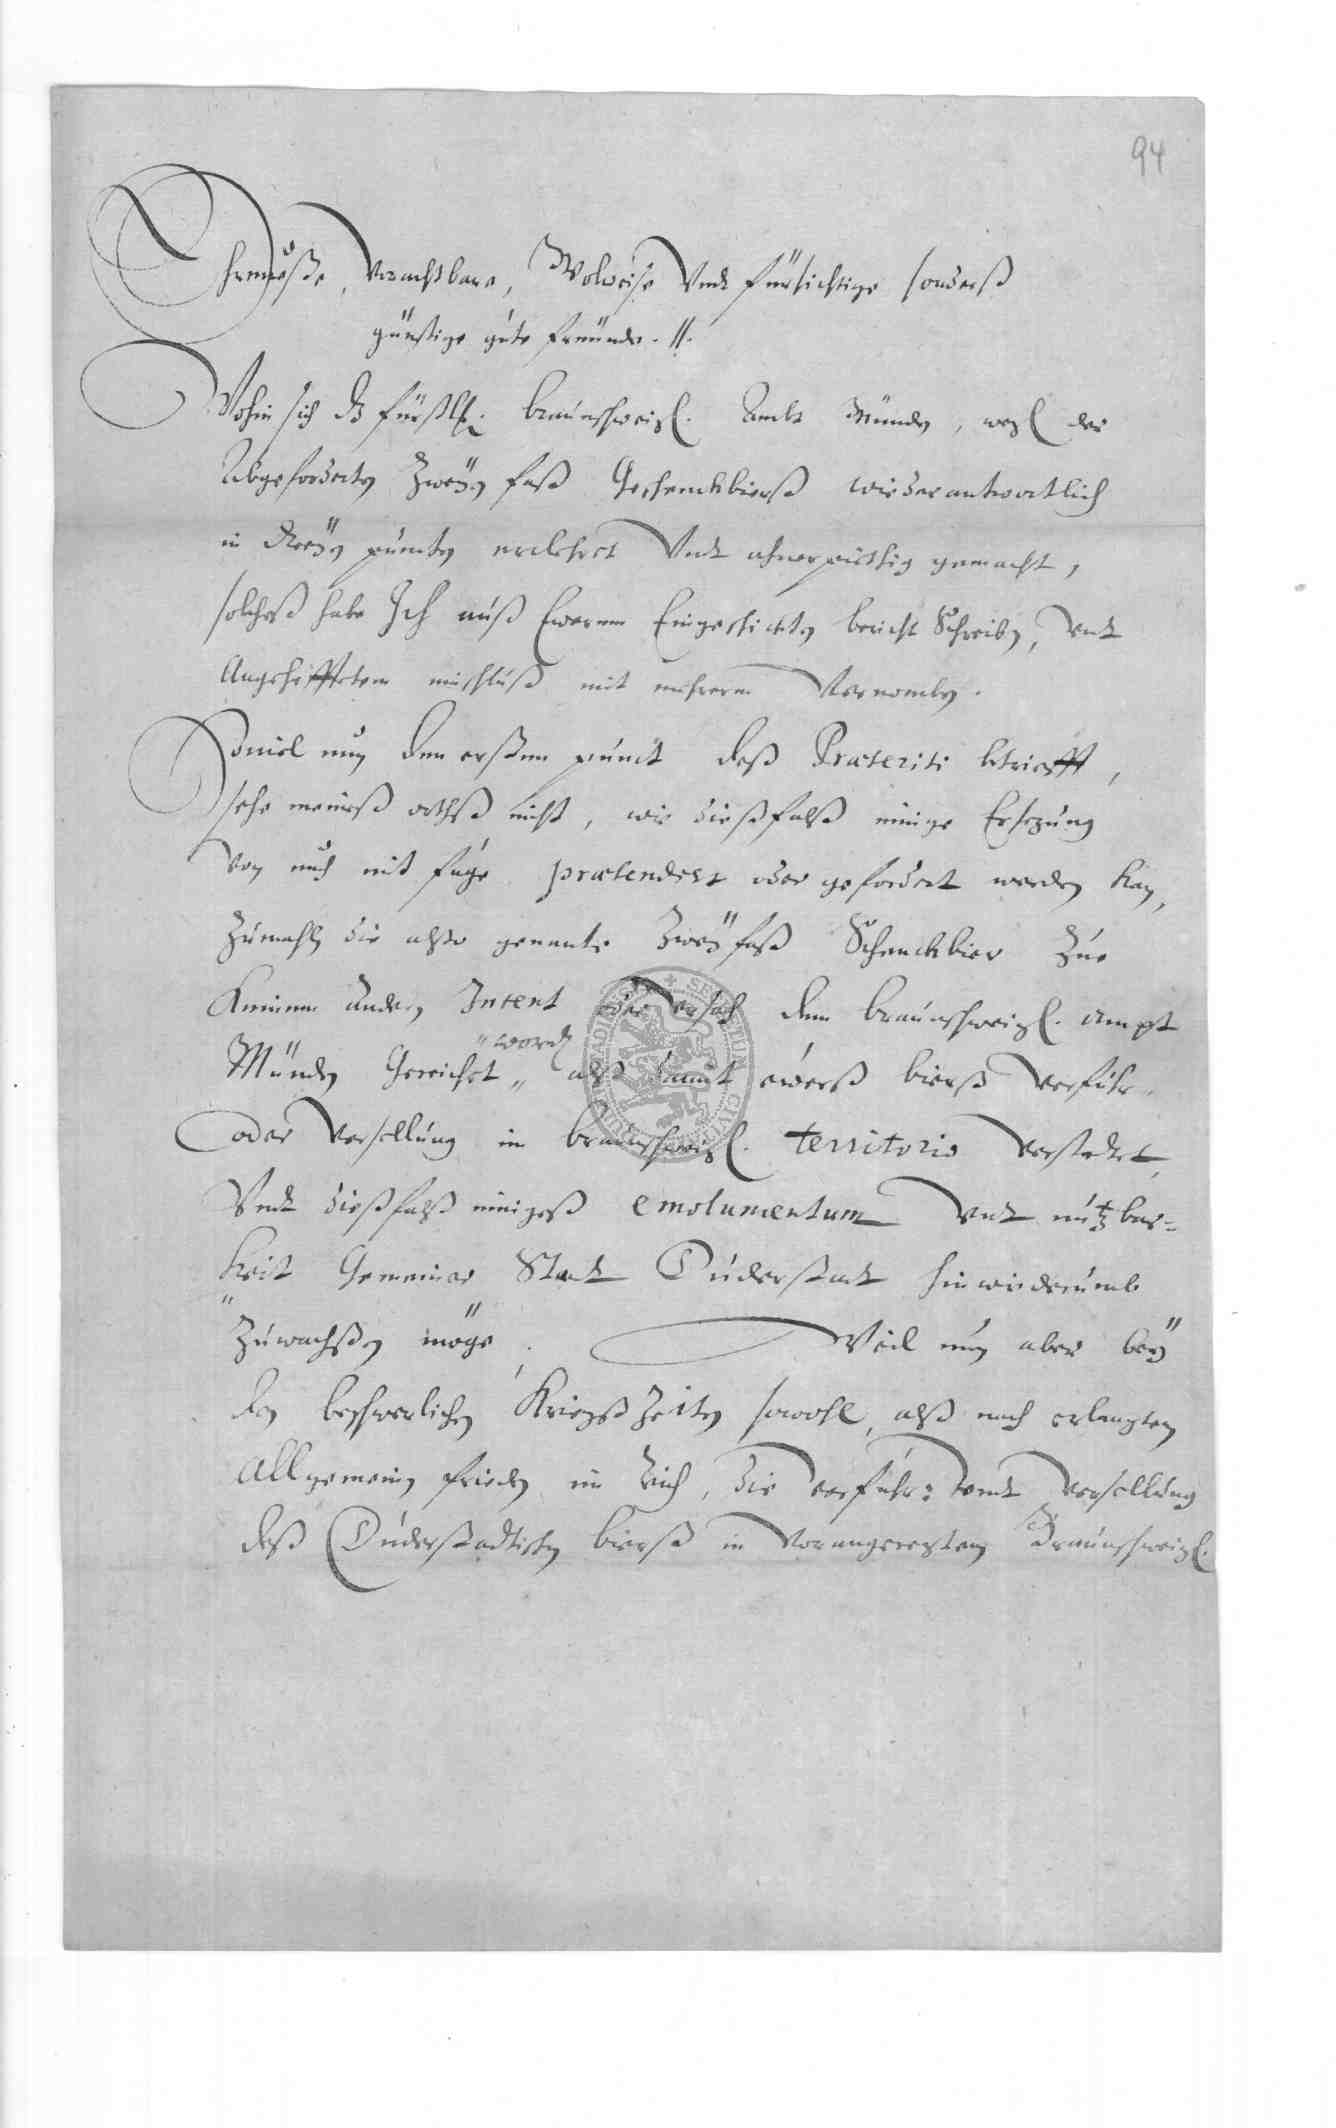 94
Ehrnueste, Vorachtbare, Wolweise Vndt fürsichtige sonderß
günstige gúte freunde. //.
Wohin sich dz fürstl. braunschweigl. Ambt Münden, wegl der
Abgeforderten Zweyen faß Geschenckbierß wiederantwortlich
in Dreyen puncten erclehret Vndt gemacht,
solcheß habe Ich auß Ewerem Eingeschickten bericht Schreiben, Vndt
Angehefftetem einschluß mit mehrerm Vernomben.
Souiel nun den ersten punct deß Præteriti betriefft,
sehe meineß orthß nicht, wie dießfalß einige Ersezung
von euch mit fúge prætendert oder gefordert werden kan,
Zúmahln die also genante Zwey faß Schenckbier Zúe
Keinem andern Intent oder Vrsach dem braunschweigl. ampt
worden
Münden Gereichet, alß damit ewerß bierß verführ-
oder Versellung in braunschweigl. territorio verstadtet,
Vndt dießfalß einigeß emolumentum Vndt nútzbar=
keit Gemeiner Stadt Dúderstadt hinwiederumb
Zúwachßen möge. Weil nún aber bey
den beschwerlichen KriegßZeiten sowohl, alß nach erlangtem
Allgemeinen frieden im Reich, die verführ: Vndt Versellúng
deß Dúderstadtischen bierß in Vorangeregtem Braúnschweigl.